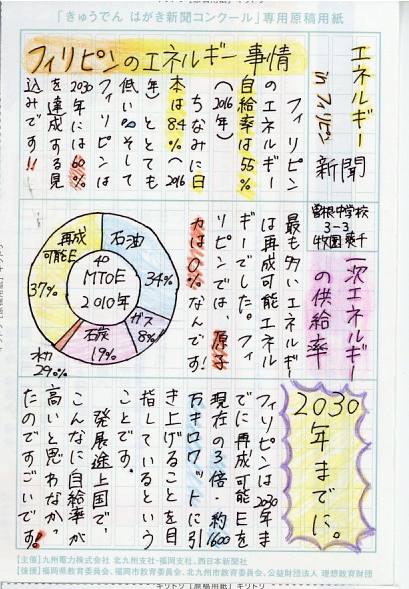 「きゅうでん はがき新聞コンクール」専用原稿用紙
エネルギー
inフィリピン
新聞
フィリピンのエネルギー事情
フィリピン
のエネルギー
自給率は55%
(2016年)
ちなみに日
本は8.4%(2016
年)ととても
低い。そして
フィリピンは
2030年には60%
を達成する見
込みです!!
曽根中学校
3-3
一次エネルギー
の供給率
最も多いエネルギー
は再成可能エネル
ギーでした。フィ
リピンでは、原子
力は0%なんです!
再成
可能E
37%
石油
34%
ガス
8%
石炭
19%
水力
2%
40
MTOE
2010年
2030
年までに。
フィリピンは2030年ま
でに再成可能Eを
現在の3倍・約1600
万キロワットに引
き上げることを目
指しているという
ことです。
発展途上国で、
こんなに自給率が
高いと思わなかっ
たのですごいです!
【主催】九州電力株式会社 北九州支社・福岡支社、西日本新聞社
【後援】福岡県教育委員会、福岡市教育委員会、北九州市教育委員会、公益財団法人 理想教育財団
キリトリ【原稿用紙】キリトリ